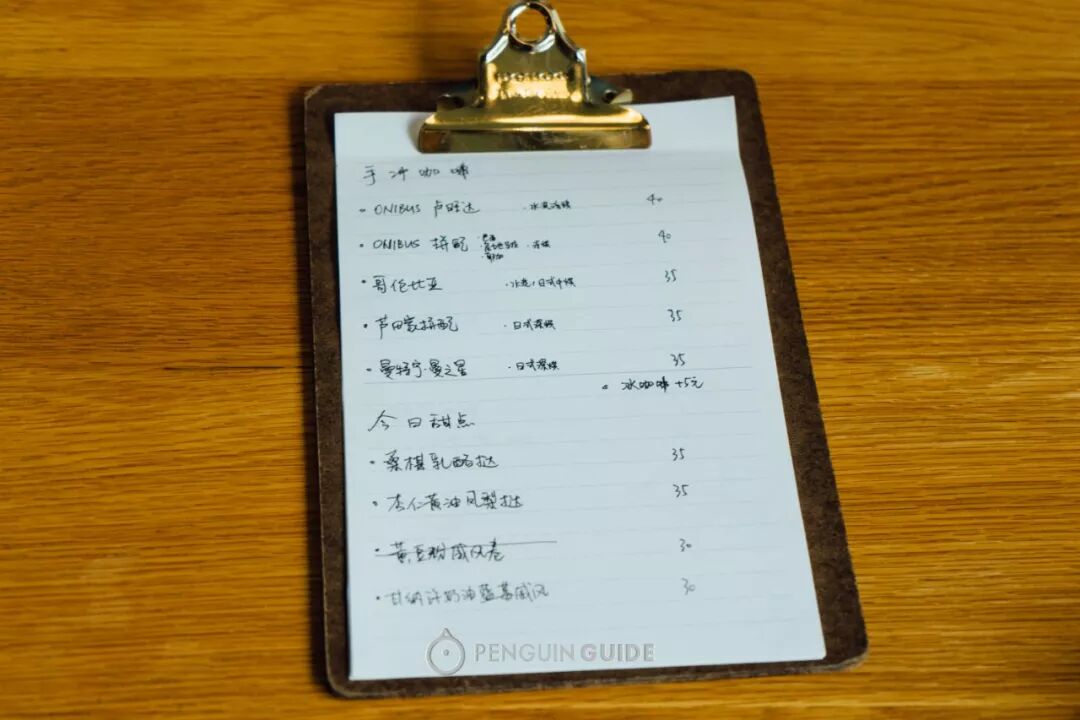 手冲咖啡
• ONIBUS 卢旺达 · 水洗浅烘 40
• ONIBUS 拼配 · 浅烘 40
• 哥伦比亚 · 水洗 / 日式中烘 35
• 芦田家拼配 · 日式深烘 35
• 曼特宁·曼之星 · 日式深烘 35
• 冰咖啡 +5元
今日甜点
• 桑椹乳酪挞 35
• 杏仁黄油凤梨挞 35
• 黄豆粉戚风卷 30
• 甘纳许奶油蓝莓戚风 30
PENGUIN GUIDE